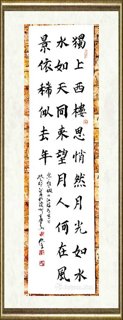 獨上西樓思悄然月光如水
水如天同來望月人何在風
景依稀似去年